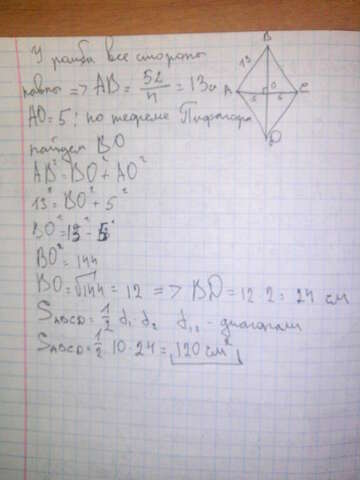 У ромба все стороны
равны => AB = 52/4 = 13см
AO = 5; по теореме Пифагора
найдем BO
AB² = BO² + AO²
13² = BO² + 5²
BO² = 13² - 5²
BO² = 144
BO = √144 = 12 => BD = 12·2 = 24 см
S ABCD = 1/2 d₁ d₂ d₁,₂ - диагонали
S ABCD = 1/2 · 10 · 24 = 120 см²
B
13
A O C
5 5
D